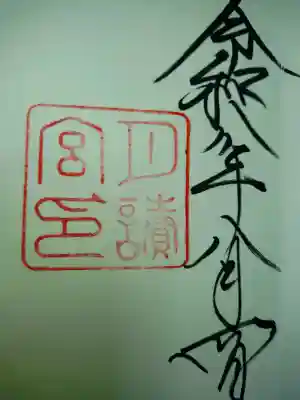 令和 年八月 日
月讀
宮印